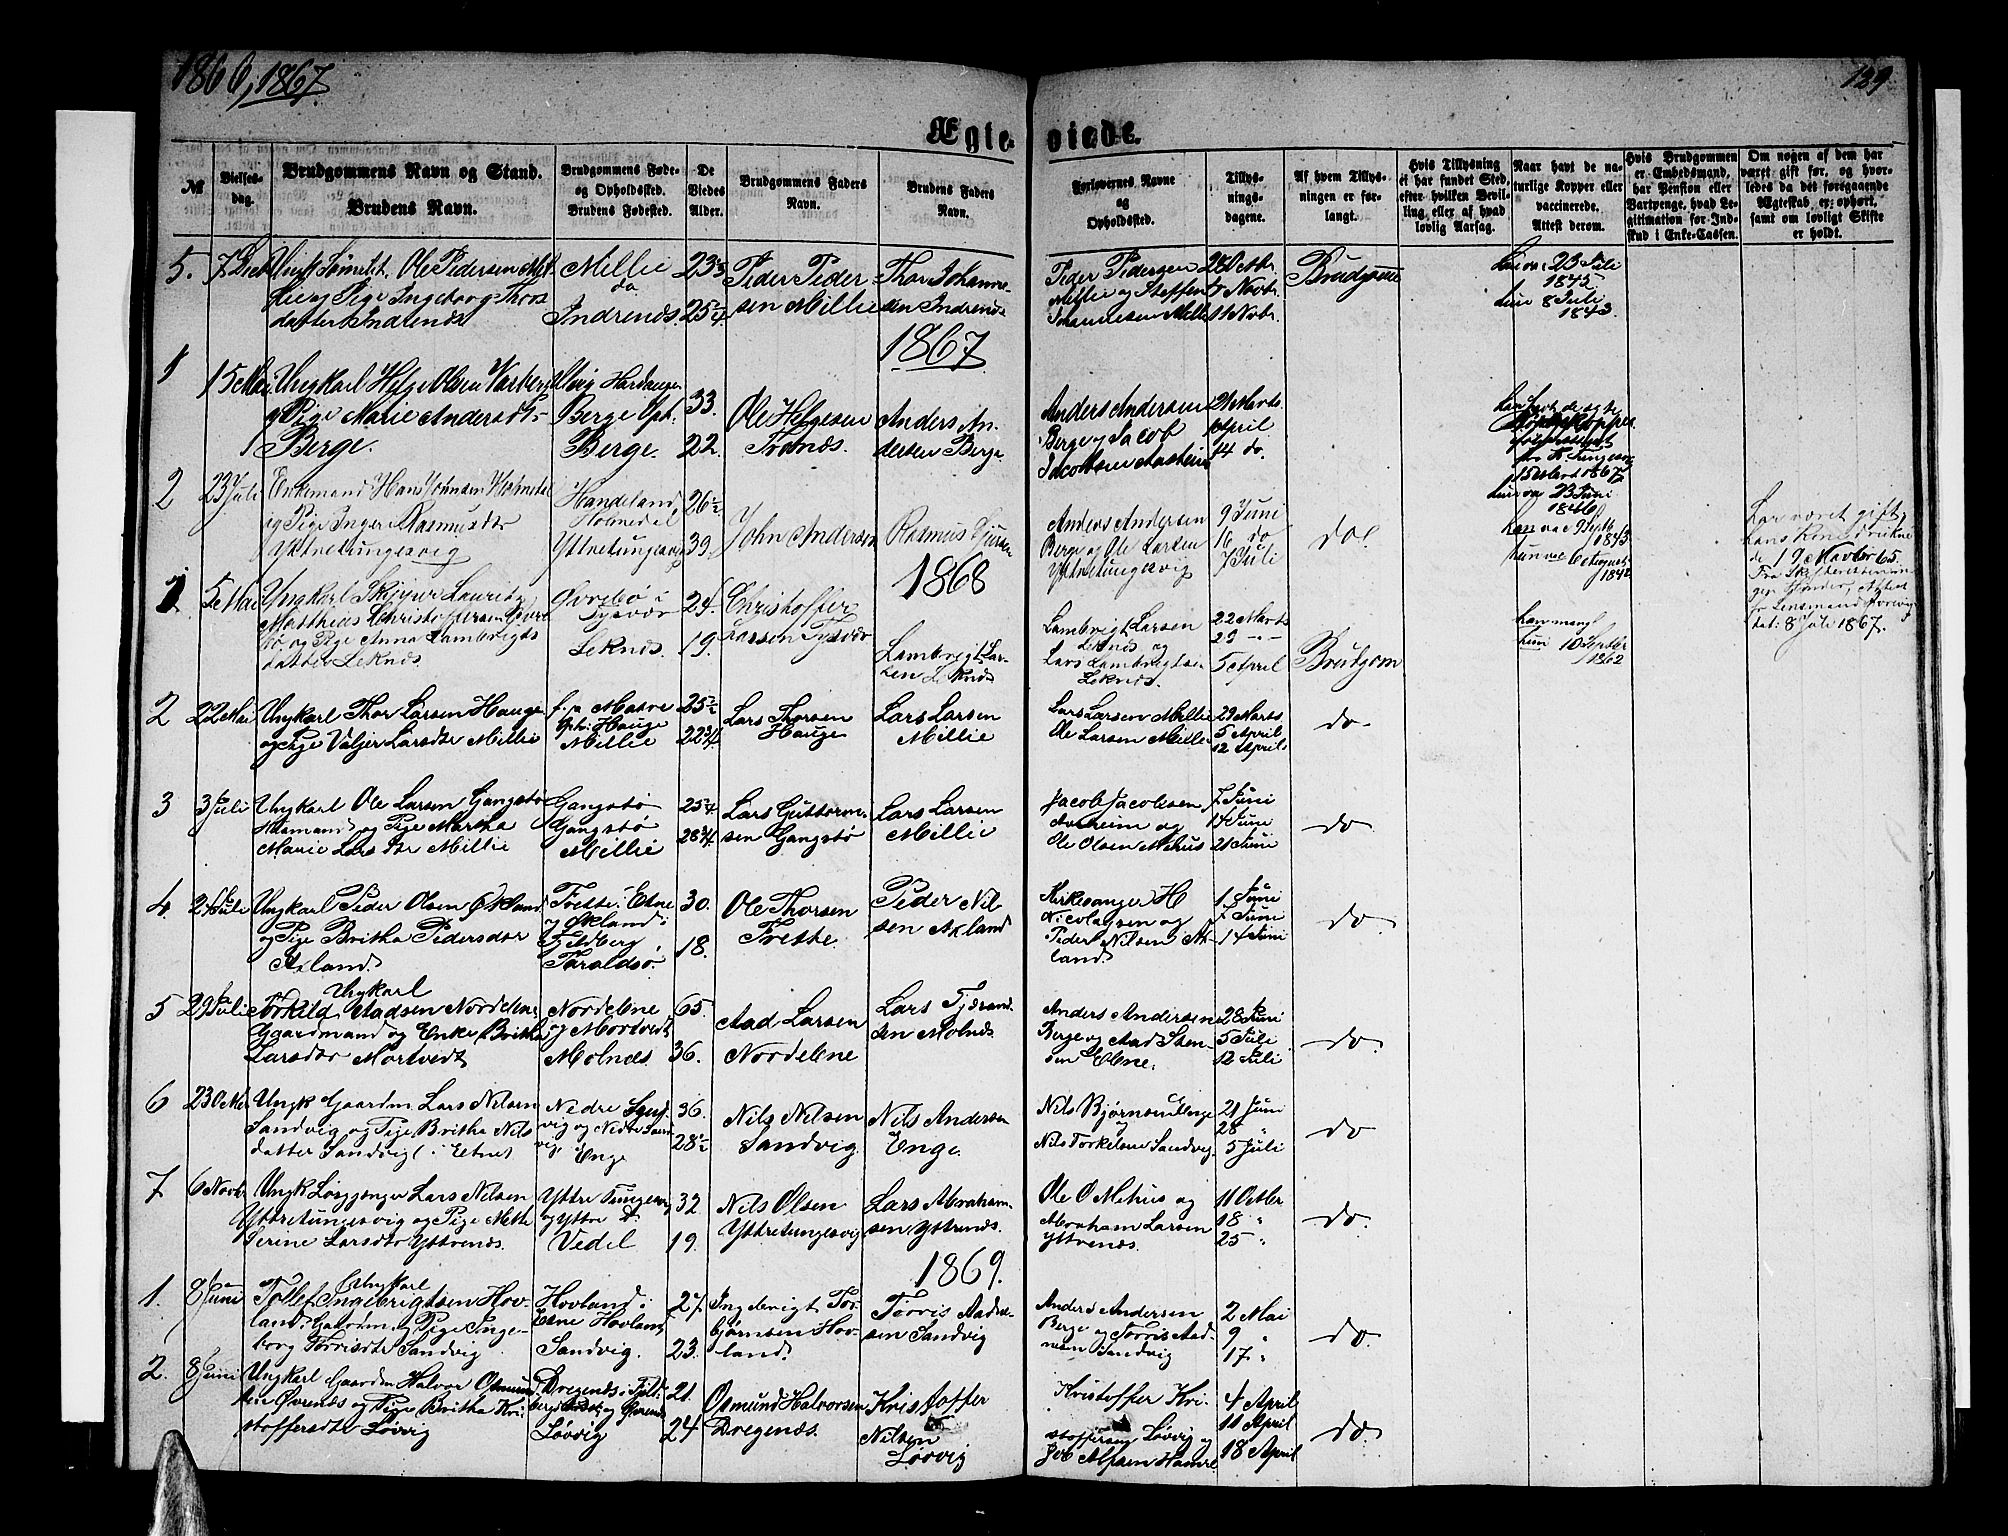 1866, 1867
139
Ægte- viede.
№
Vielses-
dag.
Brudgommens Navn og Stand.
Brudens Navn.
Brudgommens Føde-
og Opholdssted.
Brudens Fødested.
De
Viedes
Alder.
Brudgommens Faders
Navn.
Brudens Faders
Navn.
Forlovernes Navne
og
Opholdssted.
Tillys-
nings-
dagene.
Af hvem Tillys-
ningen er for-
langt.
Hvis Tillysning
ei har fundet Sted,
efter hvilken Bevil-
ling, eller af hvad
lovlig Aarsag.
Naar havt de na-
turlige Kopper eller
vaccinerede.
Attest derom.
Hvis Brudgommen
er Embedsmand,
har Pension eller
Vartpenge, hvad Le-
gitimation for Ind-
skud i Enke-Cassen.
Om nogen af dem har
været gift før, og hvor-
ledes da det foregaaende
Ægteskab er ophørt,
samt om lovligt Skifte
er holdt.
5.
Ole Pedersen Mil-
lie og Pige Ingeborg Thors
datter Indrenæs
Millie
do
Indrenæs.
Peder Peder
sen Millie
Thor Johanne-
sen Indrenæs
Peder Pedersen
Millie og Steffen
Johannesen Millie
28 Octbr.
11 Novbr.
Brudgomme
23 Juli
1845
hun 8 Juli
1843.
1867
1
15 Mai
Ungkarl Helge Olsen Varberg
og Pige Marie Andersdtr
Berge.
Ulvig Hardanger
Berge Oph.
Berge.
33.
22.
Ole Helgesen
Anders An
dersen Berge.
Anders Andersen
Berge og Jacob
Jacobsen Aasheim
21 Marts
April
14 do.
15 Marts 1867
hun va 23 Juni
1846
2
23 Juli
Enkemand Hans Johnsen Holmedal
og Pige Inger Rasmusdtr
Yttretungesvig
Handeland
Holmedal
Yttretungesvig
26½
39.
John Andersen
Rasmus
Anders Andersen
Berge og Ole Larsen
Yttretungesvig
9 Juni
16 do
7 Juli
do.
han var 9 Septb
1843
hun var 6 August
1842
har været gift,
hans Kone druknede
19 Novbr 65.
Lensmand
8 Juli 1867.
1868
1
5 Mai
Ungkarl
Matthias Christoffersen Øvre
bø, og Pige Anna Lambrigts
datter Leknæs
Øvrebø i
Tysvær
Leknæs.
24.
19.
Christoffer
Larsen Tysvær
Lambrigt Lar-
sen Leknæs
Lambrigt Larsen
Leknæs og
Lars Lambrigtsen
Leknæs.
22 Marts
29 "
5 April
Brudgom
han mangl
hun 10 Septbr
1862
2
22 Mai
Ungkarl Thor Larsen Hauge
og Pige Valjer Larsdtr Millie
f. pa Matre
Oph: Hauge
Millie
25½
22¾
Lars Thorsen
Hauge
Lars Larsen
Millie
Lars Larsen Millie
Ole Larsen Millie
29 Marts
5 April
12 April
do.
3
3 Juli
Ungkarl Ole Larsen Gangstø
Husmand og Pige Martha
Marie Larsdtr Millie
Gangstø
Gangstø
Millie
25¼
28¾
Lars Guttorm-
sen Gangstø
Lars Larsen
Millie
Jacob Jacobsen
Aasheim og
Ole Olsen Mehus
7 Juni
14 Juni
21 Juni
do.
4
2 Juli
Ungkarl Peder Olsen Økland
og Pige Britha Pedersdtr
Axland.
Frette i Etne
og Økland i
Fjeldberg
Taraldsø.
30.
18.
Ole Thorsen
Frette.
Peder Nil
sen Axland
Kirkesanger H
Nicolaisen og
Peder Nilsen Ax-
land.
1 Juni
7 Juni
14 Juni
do.
5
29 Juli
Ungkarl
Torkild Aadsen Nordelene
Gaardmand og Enke Britha
Larsdtr Mortvedt
Nordelene
og Mortvedt
Molnæs
65.
36.
Aad Larsen
Nordelene
Lars Tjærand
sen Molnæs
Anders Andersen
Berge og Aad Sten-
sen Elene.
28 Juni
5 Juli
12 Juli
do.
6
23 Octbr
Ungk Gaardm. Lars Nilsen
Sandvig og Pige Britha Nils
datter Sandvig i Etnet
Nedre Sand
vig og Nedre Sand
vig
Enge
36.
28½
Nils Nilsen
Sandvig
Nils Andersen
Enge.
Nils Bjørnsen Enge
og
Nils Torkelsen Sandvig.
21 Juni
28 "
5 Juli
do
7
6 Novbr
Ungk Løsgjænger Lars Nilsen
Yttretungesvig og Pige Mette
Serine Larsdtr Yttrenæs.
Yttre Tungesvig
og Yttre d.
Vedel
32.
19.
Nils Olsen
Yttretungesvig
Lars Abraham-
sen Yttrenæs.
Ole O Mehus og
Abraham Larsen
Yttrenæs.
11 Octbr
18 "
25 "
do.
1869.
1.
8 Juni
Ungkarl
Tollef Ingebrigtsen Hov-
land Gaardm. og Pige Inge-
borg Torrisdtr Sandvig
Hovland i
Etne Hovland
Sandvig.
27.
23.
Ingebrigt Tor-
bjørnsen Hov-
land.
Torris Aadne-
sen Sandvig
Anders Andersen
Berge og Torris Aad-
nesen Sandvig
2 Mai
9 "
17 "
do.
2.
8 Juni
Ungkarl Gaardm Halvor Osmund
sen Øvrenæs og Pige Britha Kri-
stoffersdtr Løvvig
Dregenæs i Fjeld-
berg og Øvrenæs
Løvvig
21.
24
Osmund Halvorsen
Dregenæs.
Kristoffer
Nilsen
Løvvig
Kristoffer Kri-
stoffersen Løvvig og
4 April
11 April
18 April
do.